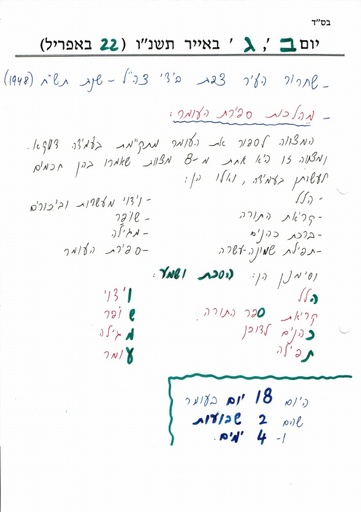 בס"ד
יום ב', ג' באייר תשנ"ו (22 באפריל)
- שחרור העיר צפת בידי צה"ל - שנת תש"ח (1948)
- מהלכות ספירת העומר:
המצווה לספור את העומר מתקיימת בעמידה דווקא.
ומצווה זו היא אחת מ-8 מצוות שאמרו בהן חכמים
לעשותן בעמידה, ואלו הן:
- הלל - וידוי מעשרות וביכורים
- קריאת התורה - שופר
- ברכת כהנים - מגילה
- תפילת שמונה-עשרה - ספירת העומר
וסימנן הן: הסכת ושמע:
הלל וידוי
קריאת ספר התורה שופר
כהנים לדוכן מגילה
תפילה עומר
היום 18 יום בעומר
שהם 2 שבועות
ו- 4 ימים.